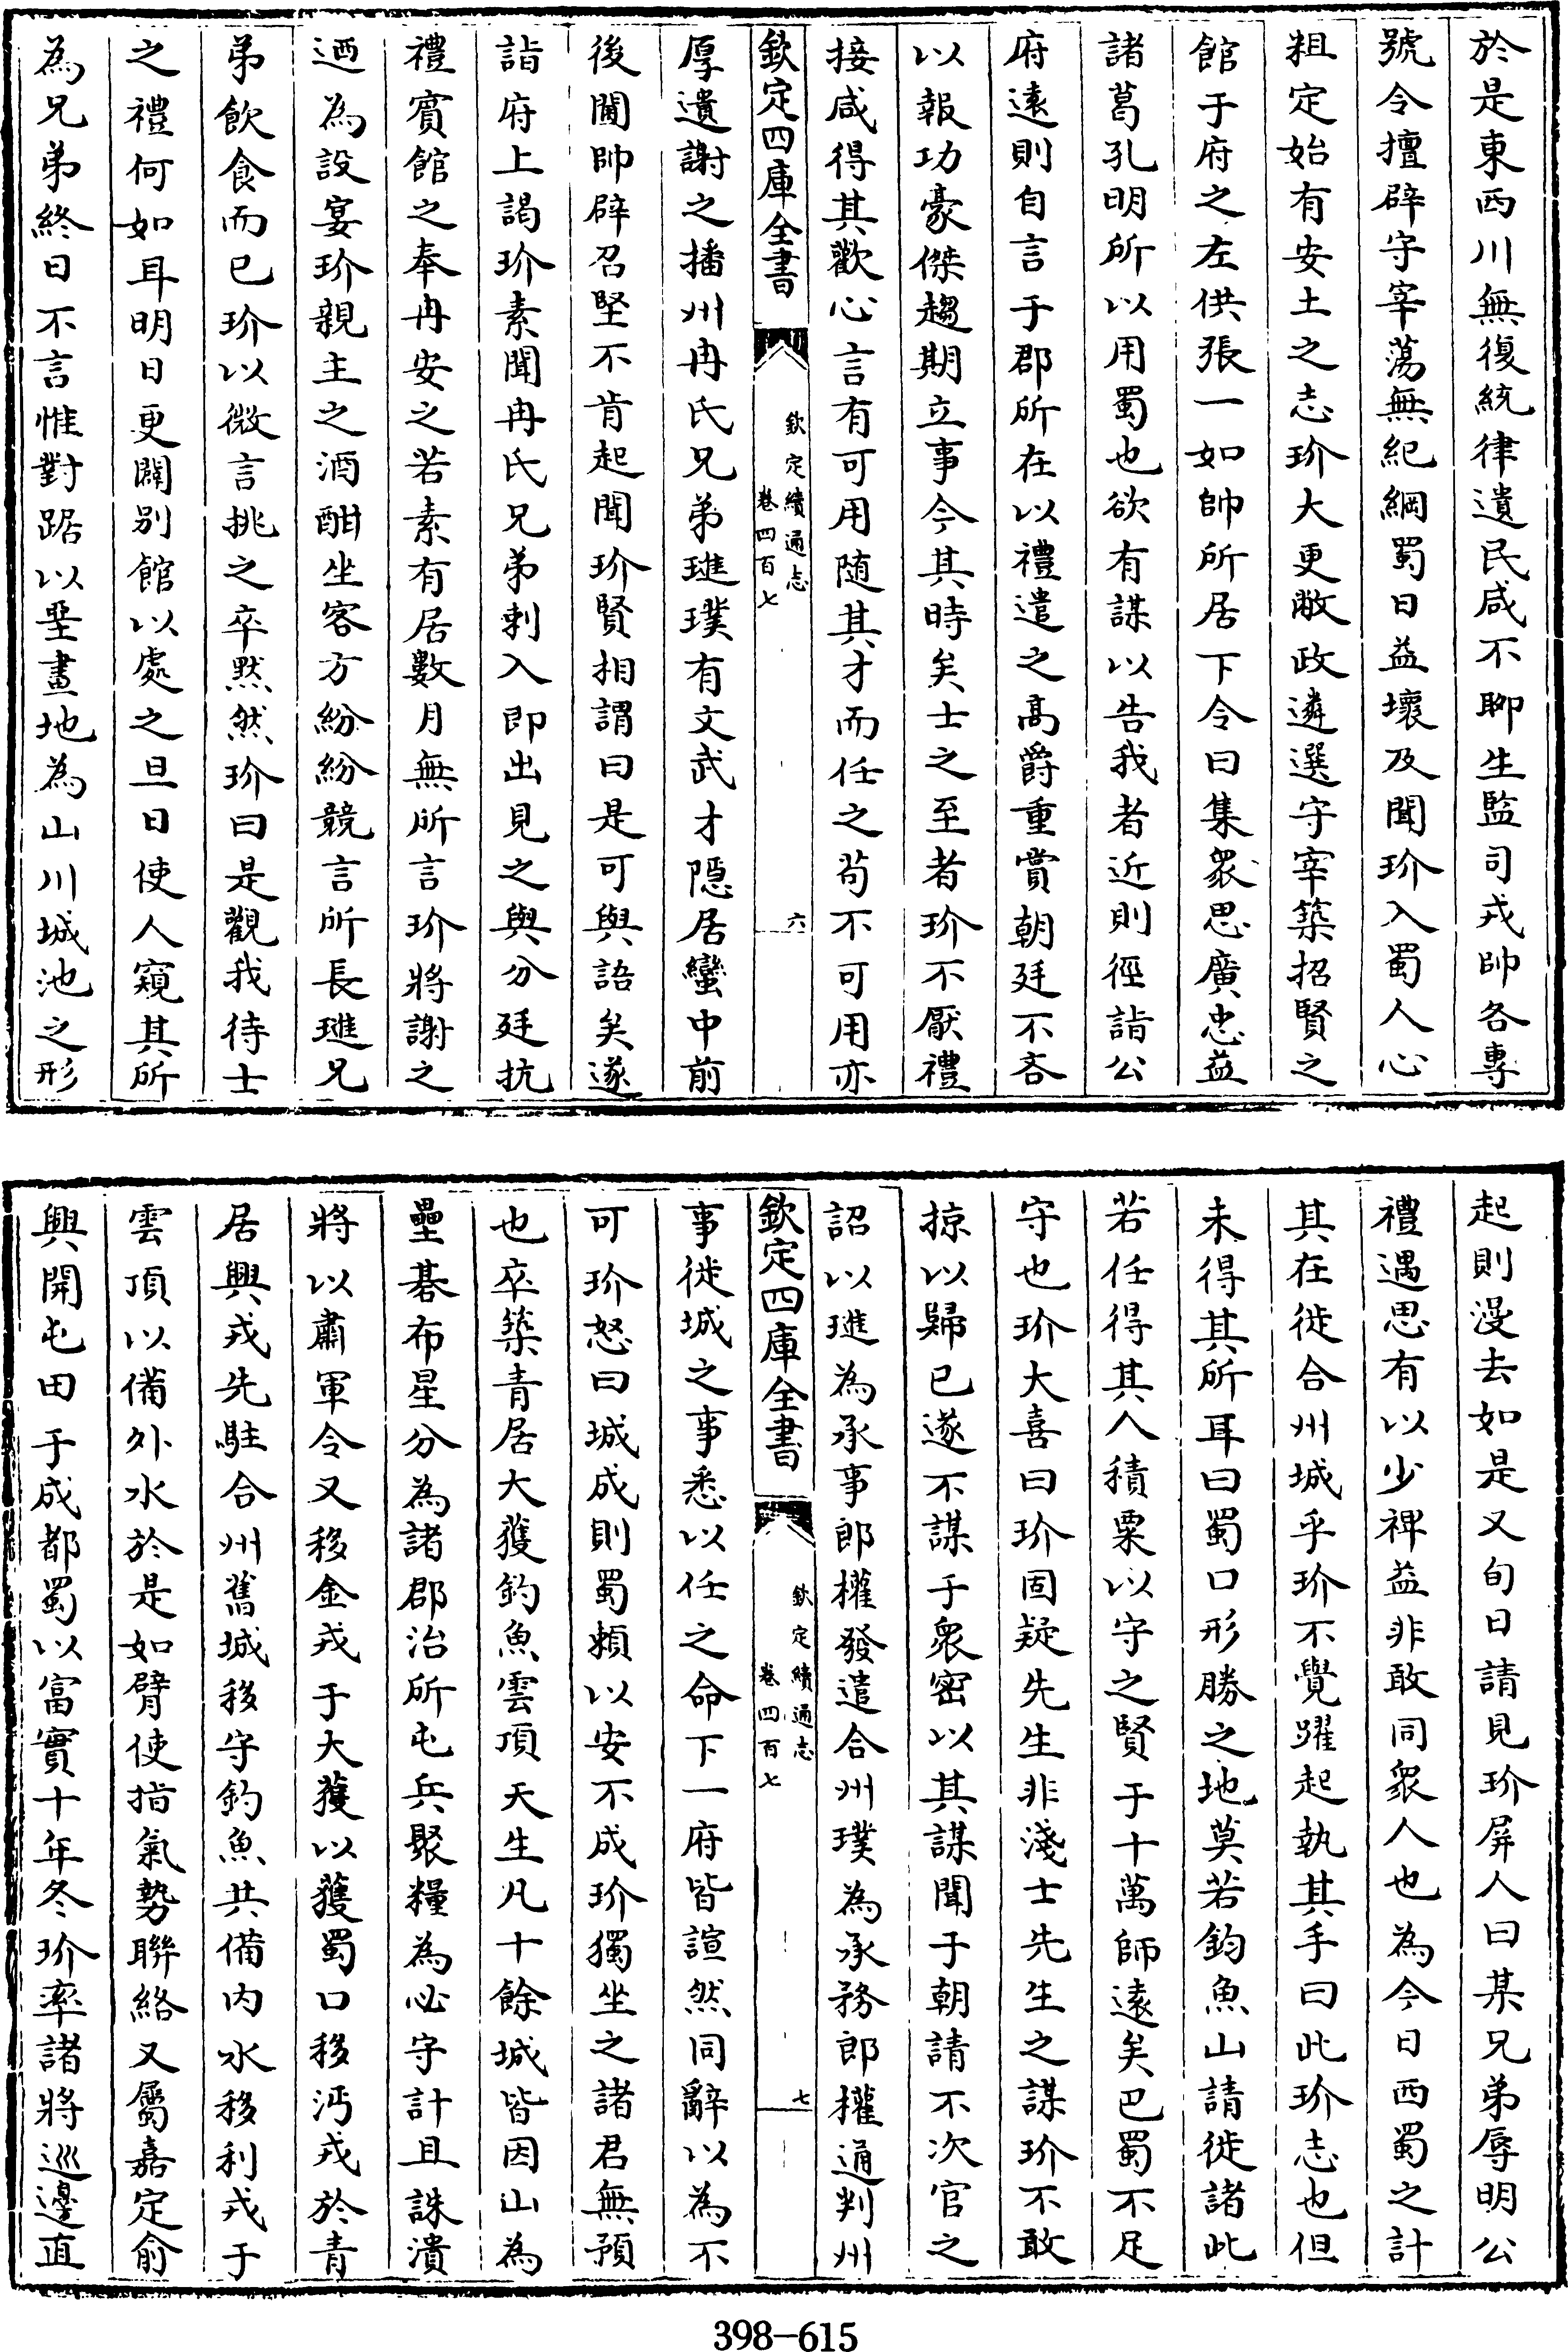 於是東西川無復統律遺民咸不聊生監司戎帥各專
號令擅辟守宰蕩無紀綱蜀日益壞及聞玠入蜀人心
粗定始有安土之志玠大更敝政遴選守宰築招賢之
館于府之左供張一如帥所居下令曰集衆思廣忠益
諸葛孔明所以用蜀也欲有謀以告我者近則徑詣公
府遠則自言于郡所在以禮遣之高爵重賞朝廷不吝
以報功豪傑趨期立事今其時矣士之至者玠不厭禮
接咸得其歡心言有可用隨其才而任之苟不可用亦
欽定四庫全書
欽定續通志
卷四百七
六
厚遺謝之播州冉氏兄弟璡璞有文武才隱居蠻中前
後閫帥辟召堅不肯起聞玠賢相謂曰是可與語矣遂
詣府上謁玠素聞冉氏兄弟刺入即出見之與分廷抗
禮賓館之奉冉安之若素有居數月無所言玠將謝之
迺為設宴玠親主之酒酣坐客方紛紛競言所長璡兄
弟飲食而已玠以微言挑之卒默然玠曰是觀我待士
之禮何如耳明日更闢别館以處之旦日使人窺其所
為兄弟終日不言惟對踞以堊畫地為山川城池之形
起則漫去如是又旬日請見玠屏人曰某兄弟辱明公
禮遇思有以少裨益非敢同衆人也為今日西蜀之計
其在徙合州城乎玠不覺躍起執其手曰此玠志也但
未得其所耳曰蜀口形勝之地莫若釣魚山請徙諸此
若任得其人積粟以守之賢于十萬師遠矣巴蜀不足
守也玠大喜曰玠固疑先生非淺士先生之謀玠不敢
掠以歸己遂不謀于衆密以其謀聞于朝請不次官之
詔以璡為承事郎權發遣合州璞為承務郎權通判州
欽定四庫全書
欽定續通志
卷四百七
七
事徙城之事悉以任之命下一府皆諠然同辭以為不
可玠怒曰城成則蜀頼以安不成玠獨坐之諸君無預
也卒築青居大獲釣魚雲頂天生凡十餘城皆因山為
壘碁布星分為諸郡治所屯兵聚糧為必守計且誅潰
將以肅軍令又移金戎于大獲以護蜀口移沔戎於青
居興戎先駐合州舊城移守釣魚共備内水移利戎于
雲頂以備外水於是如臂使指氣勢聯絡又屬嘉定俞
興開屯田于成都蜀以富實十年冬玠率諸將巡邊直
398-615